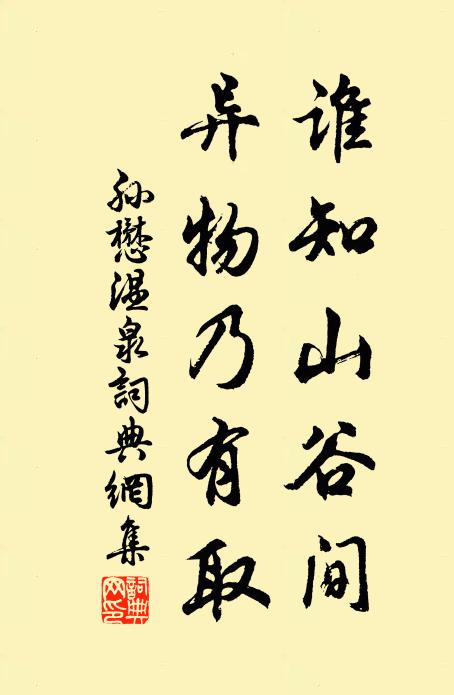 谁知山谷间
异物乃有取
孙懋温泉詞典網集
詞典网印